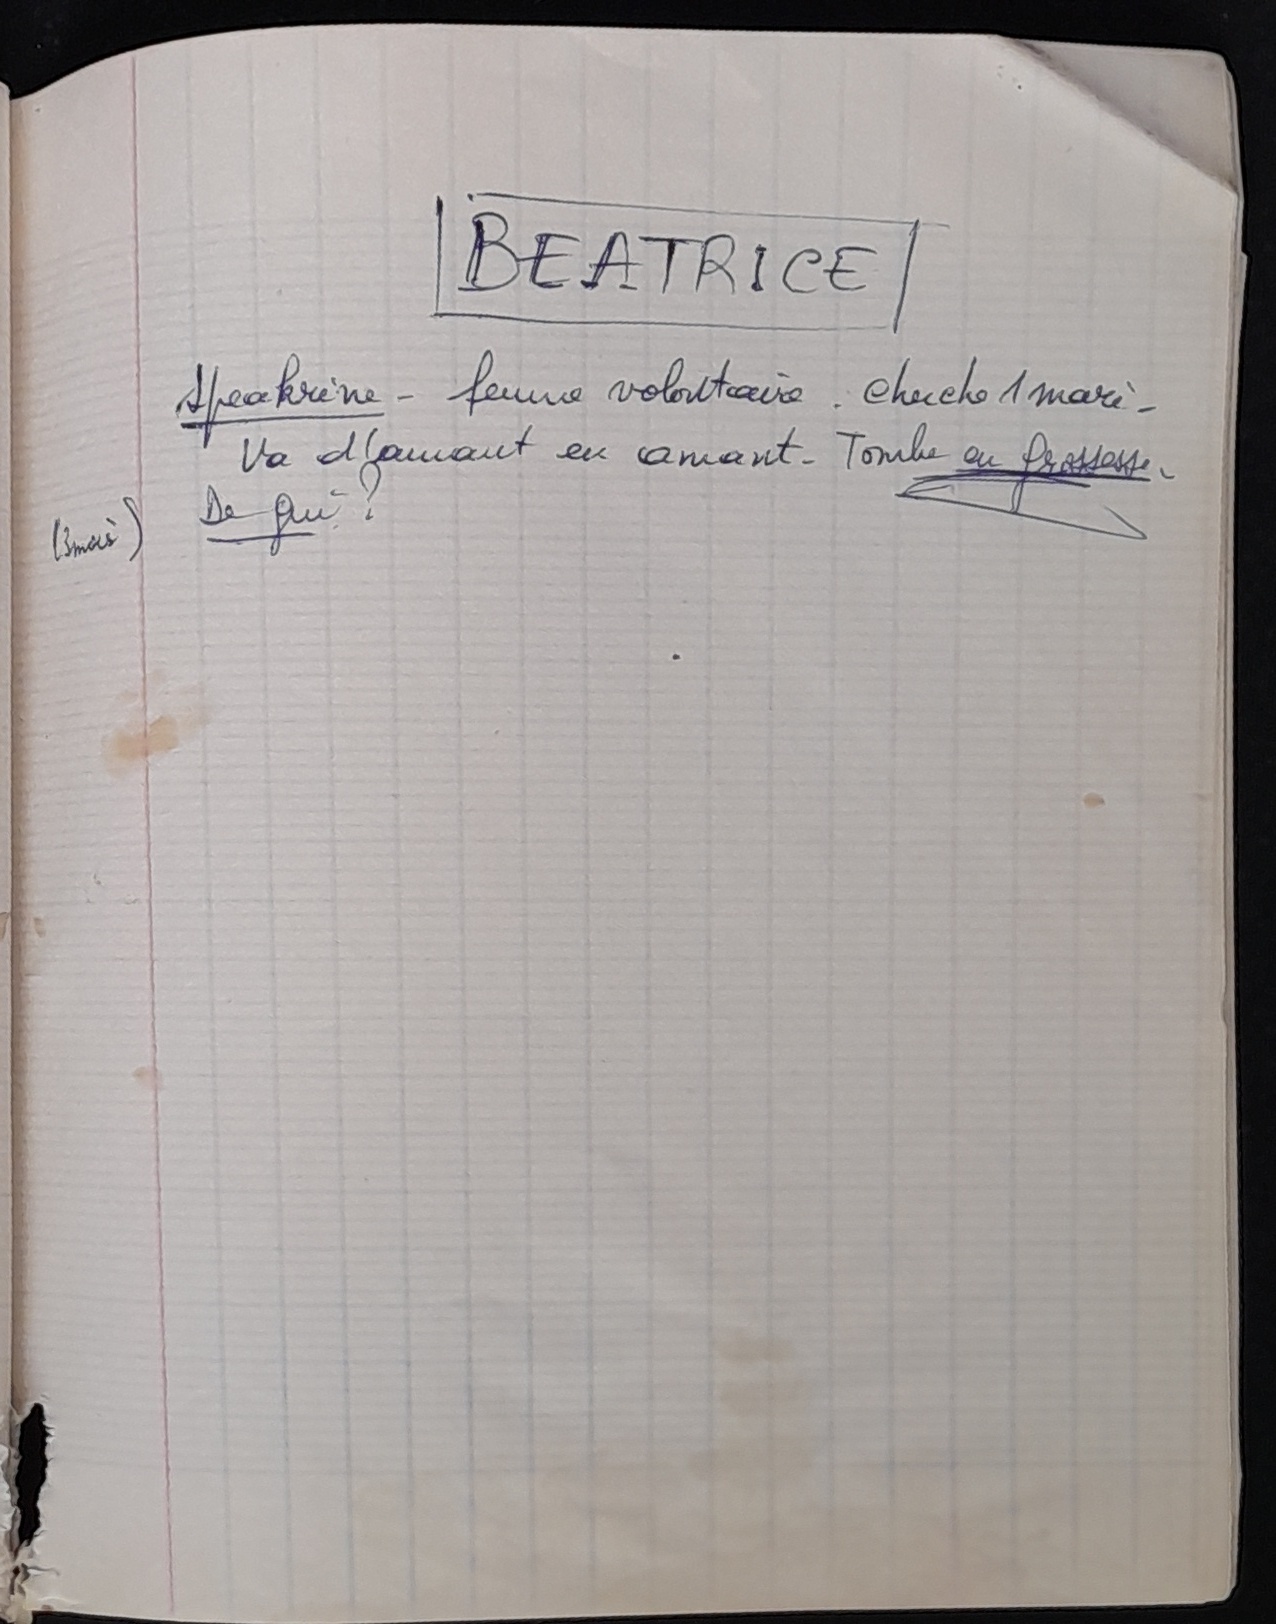 BEATRICE
Speakrine - femme volontaire. Cherche 1 mari -
Va d'amant en amant - Tombe en grossesse.
(3 mois) De qui ?